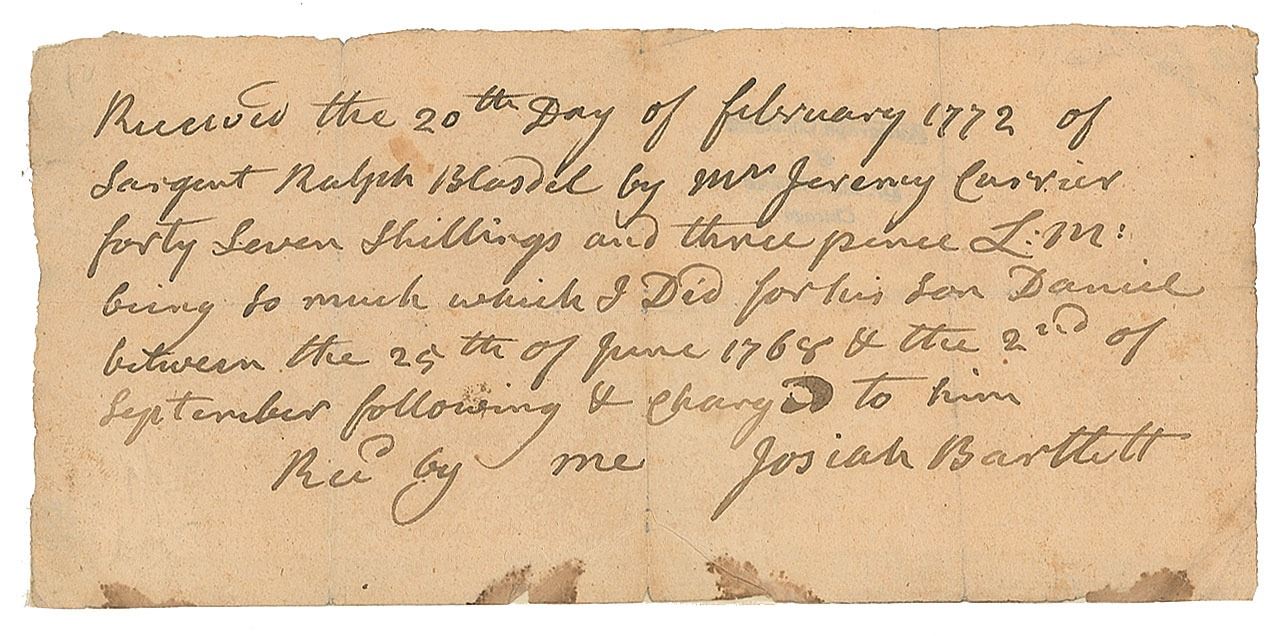 Receiv'd the 20th Day of february 1772 of
Sargent Ralph Blasdel by Mr Jeremy Currier
forty Seven Shillings and three pence L:M:
being So much which I Did for his Son Daniel
between the 25th of June 1768 & the 2nd of
September following & Charg'd to him
Recd by me Josiah Bartlett